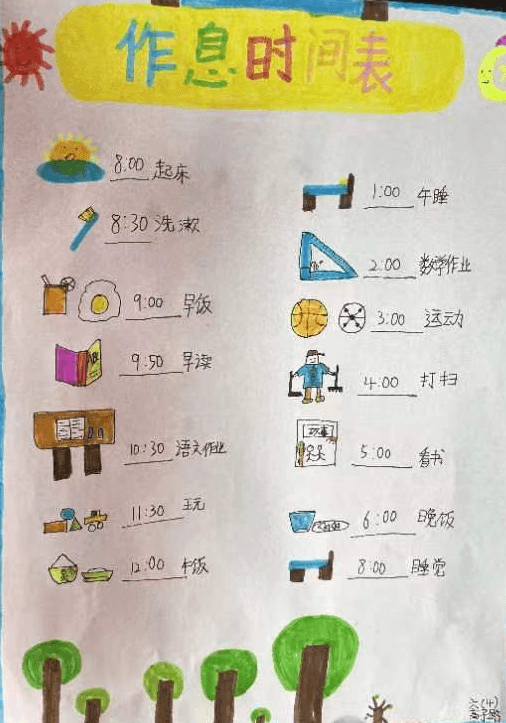 作息时间表
8:00 起床
8:30 洗漱
9:00 早饭
9:50 早读
10:30 语文作业
11:30 玩
12:00 午饭
1:00 午睡
2:00 数学作业
3:00 运动
4:00 打扫
5:00 看书
6:00 晚饭
8:00 睡觉